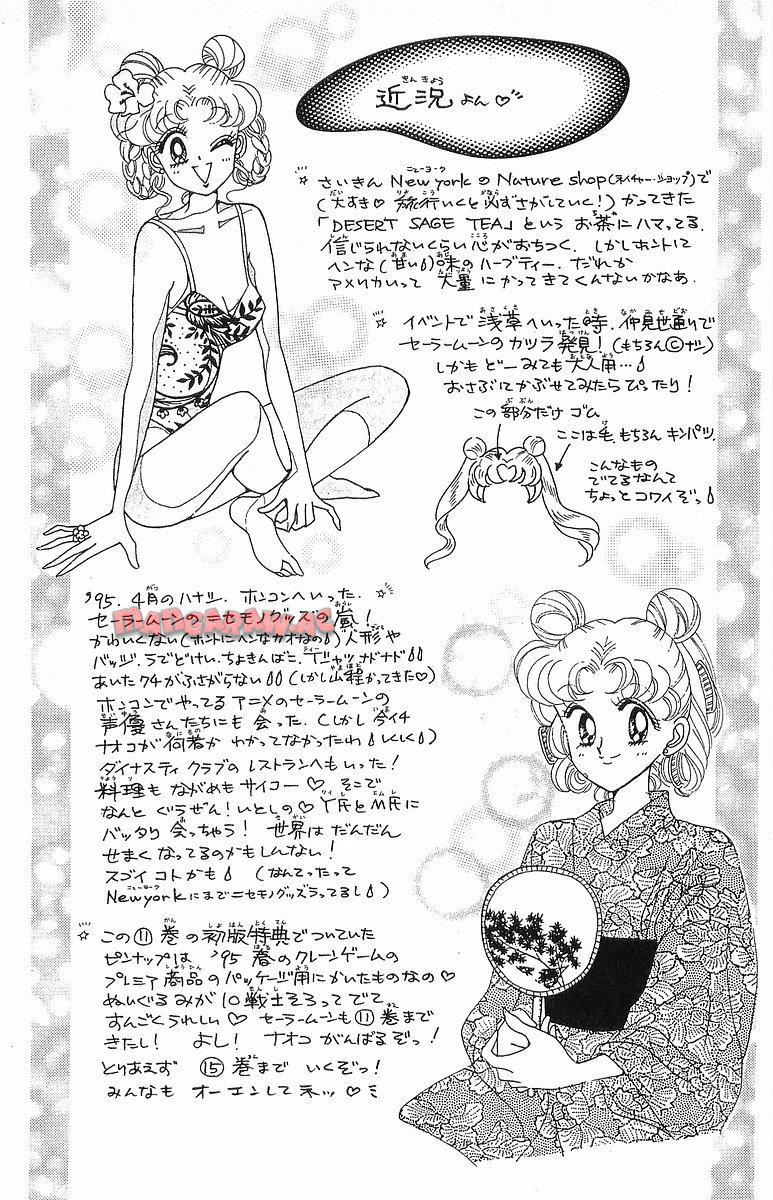 近況よん♡
☆ さいきん New yorkの Nature shop(ネイチャー・ショップ)で
(大すき♡ 旅行いくと必ずさがしていく!)かってきた
「DESERT SAGE TEA」という お茶にハマってる.
信じられないくらい心がおちつく. しかしホントに
ヘンな(甘い)味のハーブティー. だれか
アメリカいって 大量にかってきてくんないかなあ.
☆ イベントで 浅草へいった時. 仲見世通りで
セーラームーンの カツラ 発見! (もちろん©ナシ)
しかも どーみても大人用…
おさぶにかぶせてみたらぴったり!
この部分だけ ゴム
ここは毛. もちろん キンパツ.
こんなもの
でてるなんて
ちょっと コワイぞっ
'95. 4月のハナシ. ホンコンへいった. ☆
セーラームーンのニセモノグッズの嵐!
かわいくない(ホントにヘンなカオなの)人形や
バッジ. うでどけい. ちょきんばこ. Tシャツ ナドナド
あいたクチがふさがらない (しかし山程かってきた♡)
ホンコンでやってる アニメのセーラームーンの
声優さんたちにも 会った. (しかし 今イチ
ナオコが何者か わかってなかったわ しくしく)
ダイナスティ クラブの レストランへもいった!
料理も ながめも サイコー♡ そこで
なんと ぐうぜん! いとしの♡ Y氏とM氏に
バッタリ 会っちゃう! 世界は だんだん
せまく なってるのかもしんない!
スゴイ コトかも (なんてったって
New yorkにまでニセモノグッズうってるし)
☆ この⑪巻の初版特典でついていた
ピンナップは '95 春のクレーンゲームの
プレミア商品のパッケージ用にかいたものなの♡
ぬいぐるみが10戦士そろってでて
すんごくうれしい♡ セーラームーンも⑪巻まで
きたし! よし! ナオコ がんばるぞっ!
とりあえず ⑮巻まで いくぞっ!
みんなも オーエンしてネッ♡